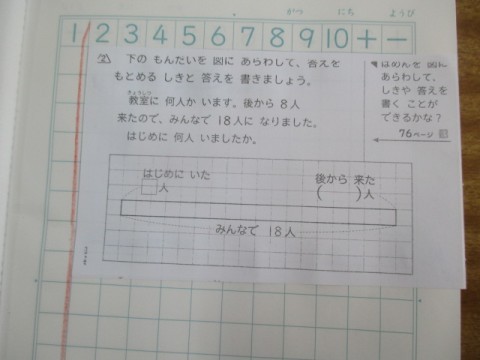 がつ にち ようび
1 2 3 4 5 6 7 8 9 10 + −
下の もんだいを 図に あらわして、答えを
もとめる しきと 答えを 書きましょう。
きょうしつ
教室に 何人か います。後から 8人
来たので、みんなで 18人に なりました。
はじめに 何人 いましたか。
はじめに いた
□人
後から 来た
( )人
みんなで 18人
ばめんを 図に
あらわして、
しきや 答えを
書く ことが
できるかな?
76ページ